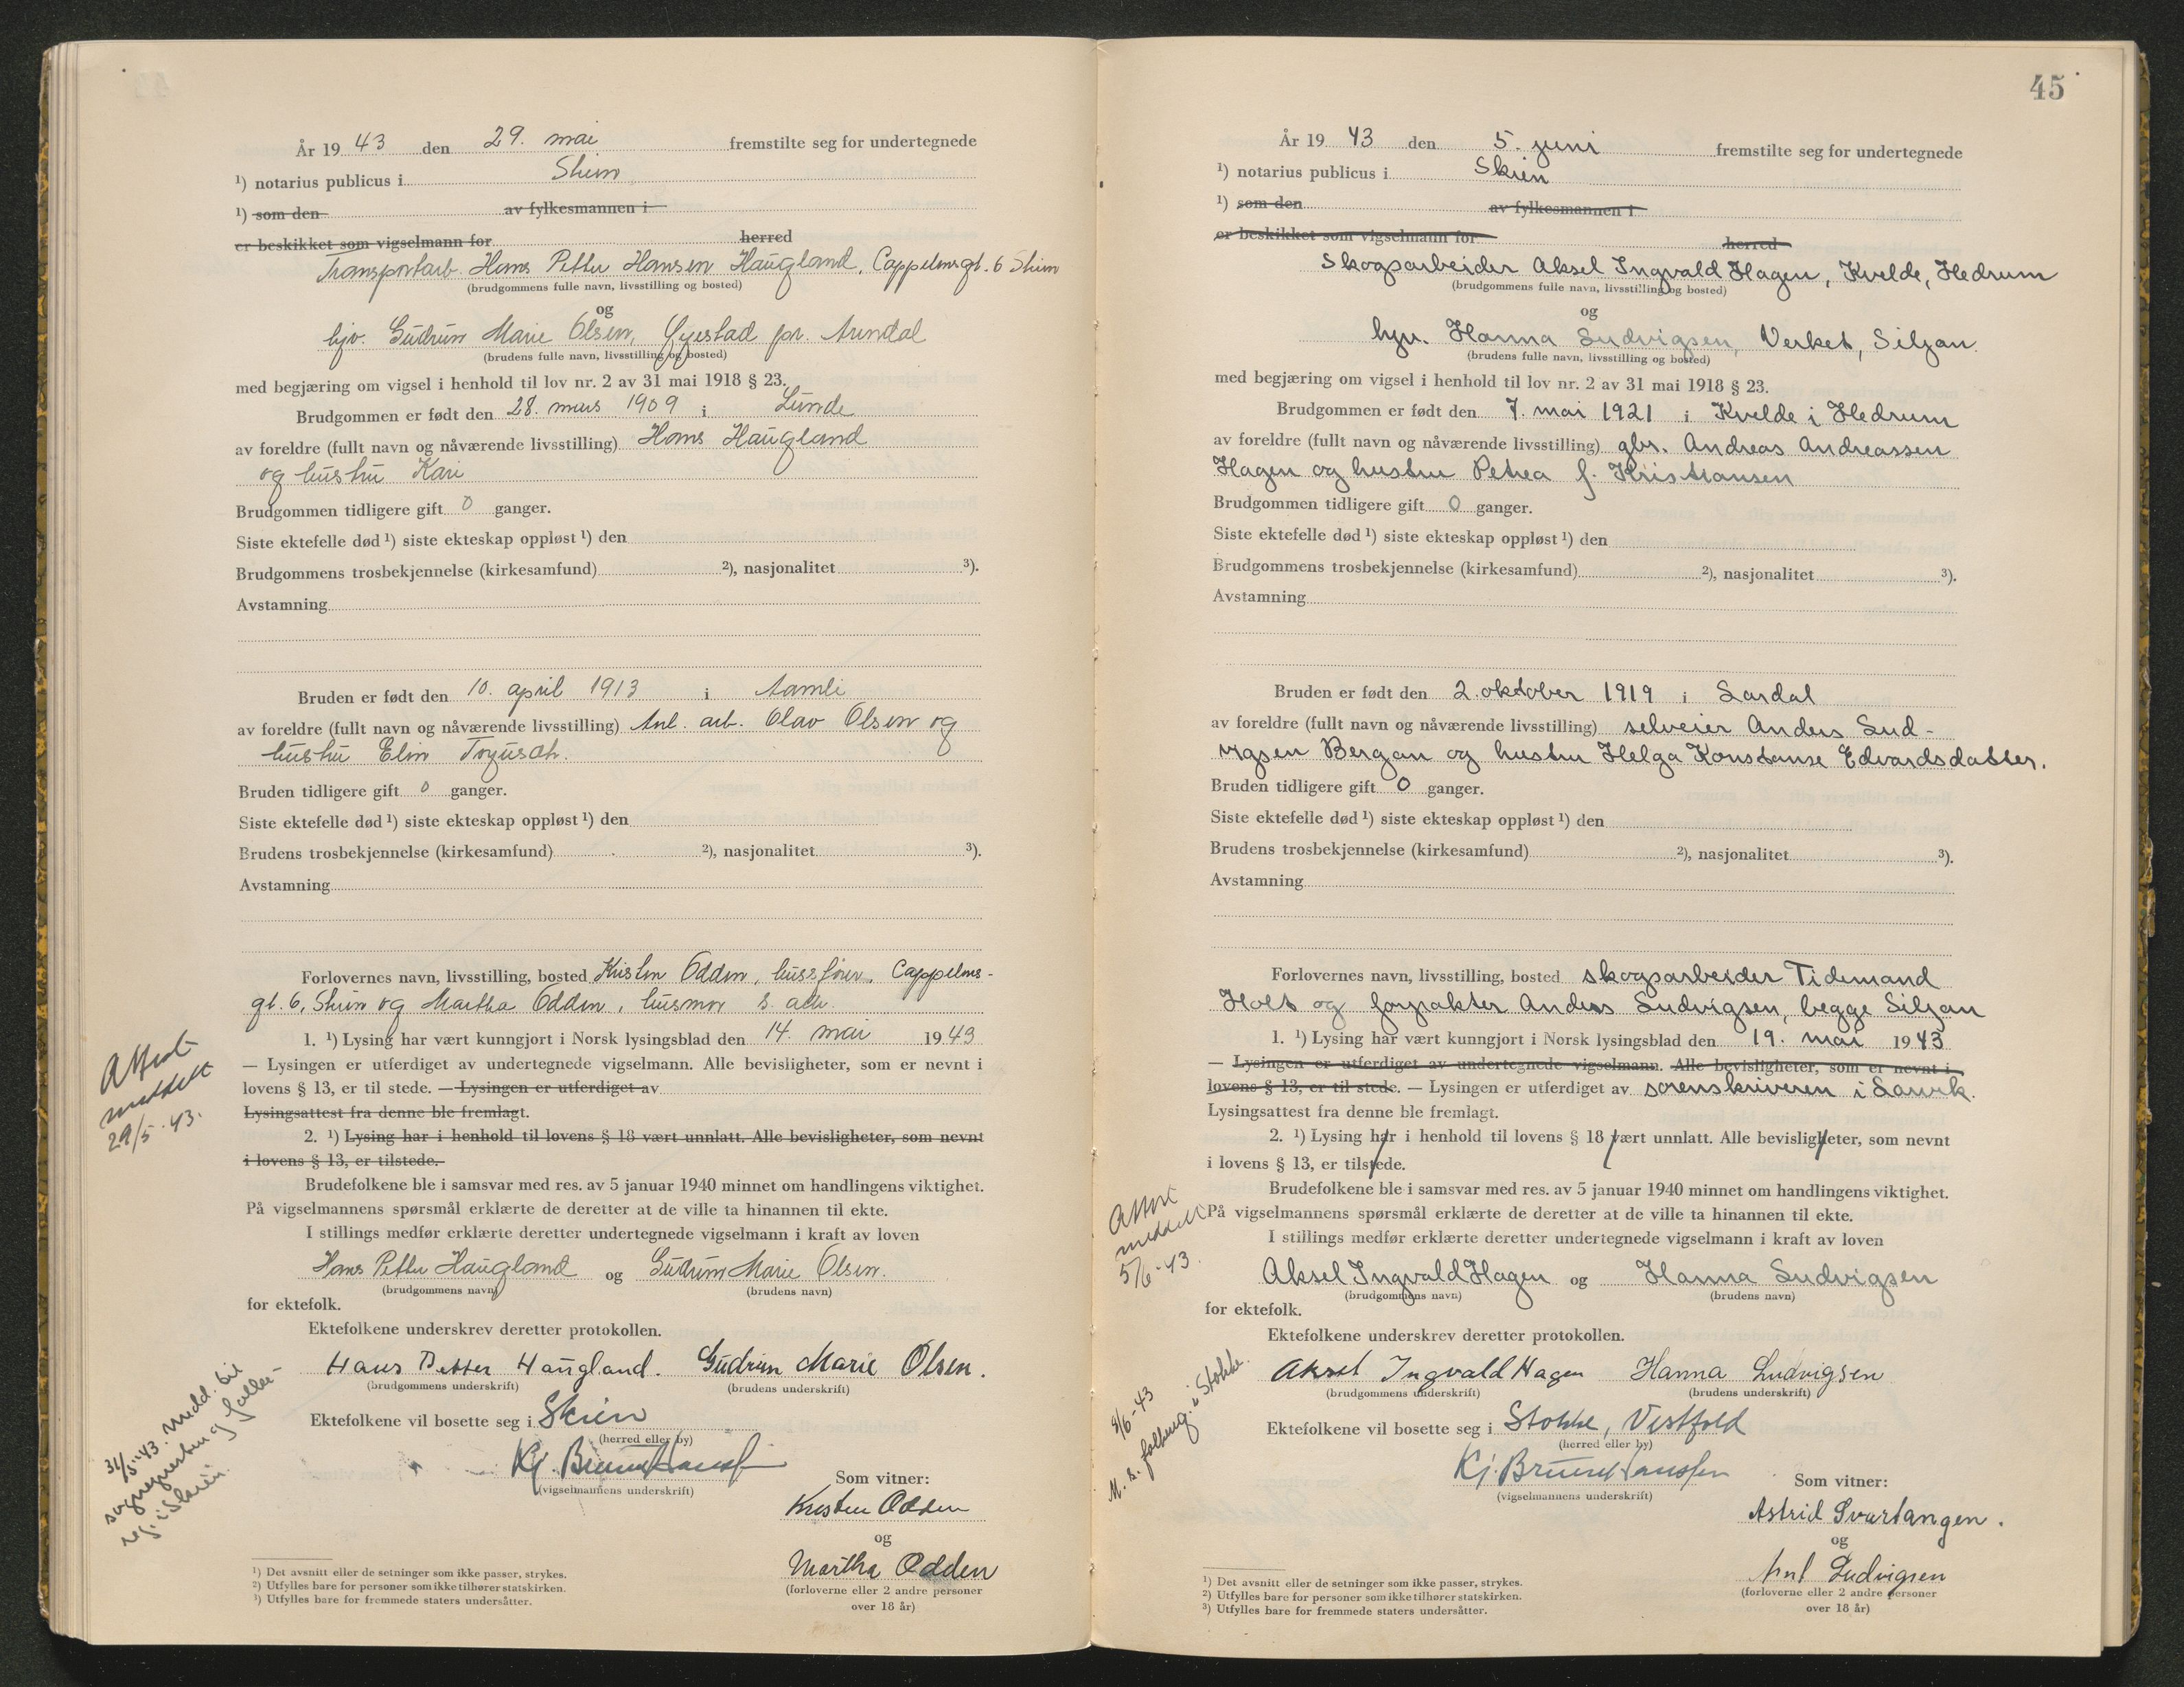 År 19 43 den 29. mai fremstilte seg for undertegnede
¹) notarius publicus i Skien
¹) som den av fylkesmannen i
er beskikket som vigselmann for herred
Transportarb. Hans Petter Hansen Haugland, Cappelensgt. 6 Skien
(brudgommens fulle navn, livsstilling og bosted)
og
hjv. Gudrun Marie Olsen, Øyestad pr. Arendal
(brudens fulle navn, livsstilling og bosted)
med begjæring om vigsel i henhold til lov nr. 2 av 31 mai 1918 § 23.
Brudgommen er født den 28. mars 1909 i Lunde
av foreldre (fullt navn og nåværende livsstilling) Hans Haugland
og hustru Kari
Brudgommen tidligere gift 0 ganger.
Siste ektefelle død ¹) siste ekteskap oppløst ¹) den
Brudgommens trosbekjennelse (kirkesamfund) ²), nasjonalitet ³).
Avstamning
Bruden er født den 10. april 1913 i Aamli
av foreldre (fullt navn og nåværende livsstilling) Anl. arb. Olav Olsen og
hustru Elin
Bruden tidligere gift 0 ganger.
Siste ektefelle død ¹) siste ekteskap oppløst ¹) den
Brudens trosbekjennelse (kirkesamfund) ²), nasjonalitet ³).
Avstamning
Forlovernes navn, livsstilling, bosted Kristen Odden, Cappelens-
gt. 6, Skien og Martha Odden, husmor s. adr.
1. ¹) Lysing har vært kunngjort i Norsk lysingsblad den 14. mai 1943
— Lysingen er utferdiget av undertegnede vigselmann. Alle bevisligheter, som er nevnt i
lovens § 13, er til stede. — Lysingen er utferdiget av
Lysingsattest fra denne ble fremlagt.
2. ¹) Lysing har i henhold til lovens § 18 vært unnlatt. Alle bevisligheter, som nevnt
i lovens § 13, er tilstede.
Brudefolkene ble i samsvar med res. av 5 januar 1940 minnet om handlingens viktighet.
På vigselmannens spørsmål erklærte de deretter at de ville ta hinannen til ekte.
I stillings medfør erklærte deretter undertegnede vigselmann i kraft av loven
Hans Petter Haugland og Gudrun Marie Olsen.
(brudgommens navn) (brudens navn)
for ektefolk.
Ektefolkene underskrev deretter protokollen.
Hans Petter Haugland. Gudrun Marie Olsen.
(brudgommens underskrift) (brudens underskrift)
Ektefolkene vil bosette seg i Skien
(herred eller by)
Kj. Bruun Hanssen
(vigselmannens underskrift)
Som vitner:
Kristen Odden
og
Martha Odden
(forloverne eller 2 andre personer
over 18 år)
¹) Det avsnitt eller de setninger som ikke passer, strykes.
²) Utfylles bare for personer som ikke tilhører statskirken.
³) Utfylles bare for fremmede staters undersåtter.
Attest
meddelt
29/5-43.
31/5-43. Medd. til
sogneprest og folke-
reg. i Skien.
45
År 19 43 den 5. juni fremstilte seg for undertegnede
¹) notarius publicus i Skien
¹) som den av fylkesmannen i
er beskikket som vigselmann for herred
skogsarbeider Aksel Ingvald Hagen, Kvelde, Hedrum
(brudgommens fulle navn, livsstilling og bosted)
og
hjv. Hanna Ludvigsen, Verket, Siljan.
(brudens fulle navn, livsstilling og bosted)
med begjæring om vigsel i henhold til lov nr. 2 av 31 mai 1918 § 23.
Brudgommen er født den 7. mai 1921 i Kvelde i Hedrum
av foreldre (fullt navn og nåværende livsstilling) gbr. Andreas Andreassen
Hagen og hustru Petrea f. Kristiansen
Brudgommen tidligere gift 0 ganger.
Siste ektefelle død ¹) siste ekteskap oppløst ¹) den
Brudgommens trosbekjennelse (kirkesamfund) ²), nasjonalitet ³).
Avstamning
Bruden er født den 2. oktober 1919 i Lardal
av foreldre (fullt navn og nåværende livsstilling) selveier Anders Lud-
vigsen Bergan og hustru Helga Konstanse Edvardsdatter.
Bruden tidligere gift 0 ganger.
Siste ektefelle død ¹) siste ekteskap oppløst ¹) den
Brudens trosbekjennelse (kirkesamfund) ²), nasjonalitet ³).
Avstamning
Forlovernes navn, livsstilling, bosted skogsarbeider Tidemand
Holt og forpakter Anders Ludvigsen, begge Siljan
1. ¹) Lysing har vært kunngjort i Norsk lysingsblad den 19. mai 1943
— Lysingen er utferdiget av undertegnede vigselmann. Alle bevisligheter, som er nevnt i
lovens § 13, er til stede. — Lysingen er utferdiget av sorenskriveren i Larvik.
Lysingsattest fra denne ble fremlagt.
2. ¹) Lysing har i henhold til lovens § 18 vært unnlatt. Alle bevisligheter, som nevnt
i lovens § 13, er tilstede.
Brudefolkene ble i samsvar med res. av 5 januar 1940 minnet om handlingens viktighet.
På vigselmannens spørsmål erklærte de deretter at de ville ta hinannen til ekte.
I stillings medfør erklærte deretter undertegnede vigselmann i kraft av loven
Aksel Ingvald Hagen og Hanna Ludvigsen
(brudgommens navn) (brudens navn)
for ektefolk.
Ektefolkene underskrev deretter protokollen.
Aksel Ingvald Hagen Hanna Ludvigsen
(brudgommens underskrift) (brudens underskrift)
Ektefolkene vil bosette seg i Stokke, Vestfold
(herred eller by)
Kj. Bruun Hanssen
(vigselmannens underskrift)
Som vitner:
Astrid Svartangen.
og
Ludvigsen
(forloverne eller 2 andre personer
over 18 år)
¹) Det avsnitt eller de setninger som ikke passer, strykes.
²) Utfylles bare for personer som ikke tilhører statskirken.
³) Utfylles bare for fremmede staters undersåtter.
Attest
meddelt
5/6-43.
8/6-43
M. s. folkereg. i Stokke.